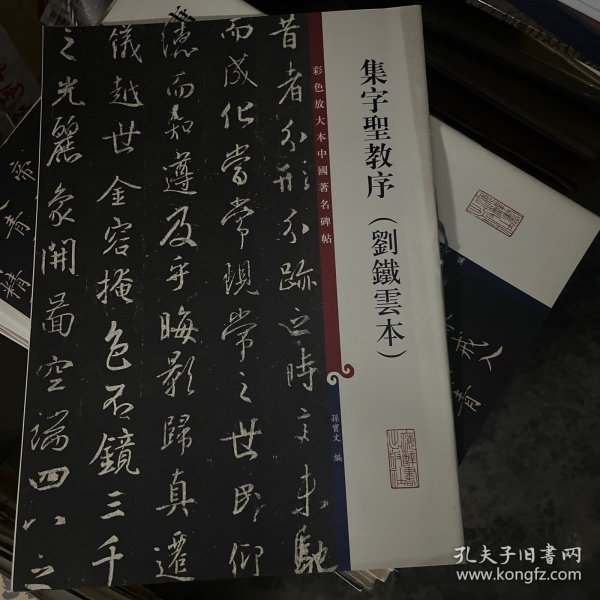 集字聖教序（劉鐵雲本）
彩色放大本中國著名碑帖
孫寶文 編
昔者分形分跡之時言未馳
而成化當常現常之世民仰
德而知遵及乎晦影歸真遷
儀越世金容掩色不鏡三千
之光麗象開圖空端四八之
青精
孔夫子旧书网
www.kongfz.com